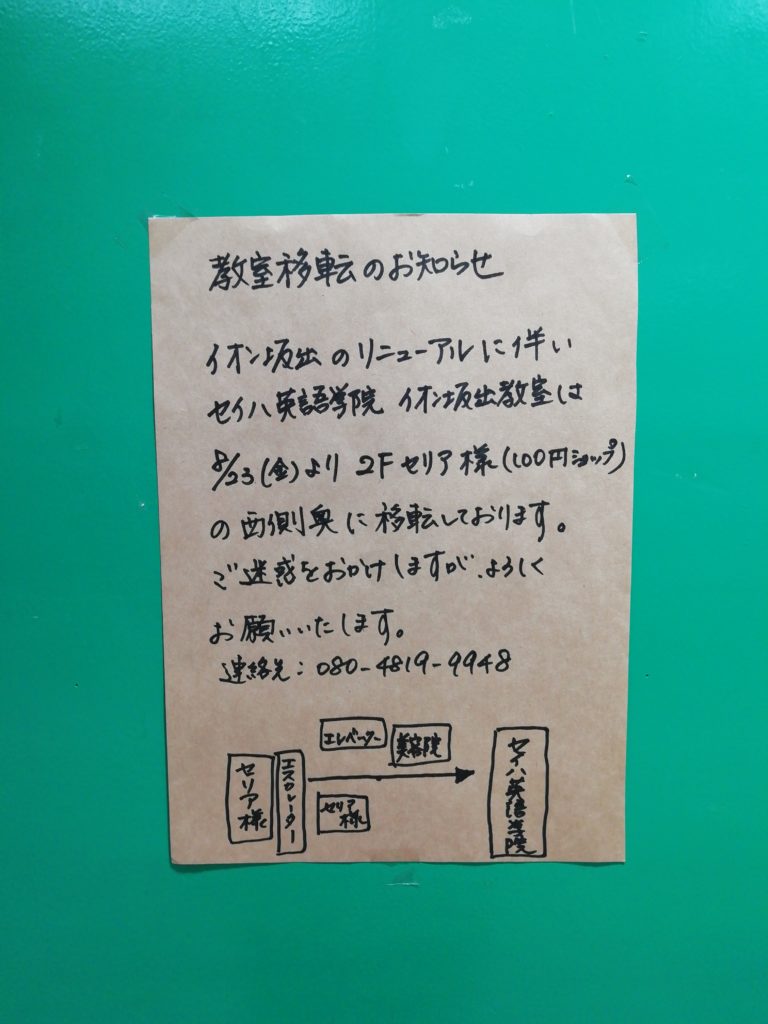 教室移転のお知らせ
イオン坂出のリニューアルに伴い
セイハ英語学院 イオン坂出教室は
8/23(金)より 2F セリア様(100円ショップ)
の西側奥に移転しております。
ご迷惑をおかけしますが、よろしく
お願いいたします。
連絡先:080-4819-9948
エレベーター
美容院
セリア様
エスカレーター
セリア様
セイハ英語学院